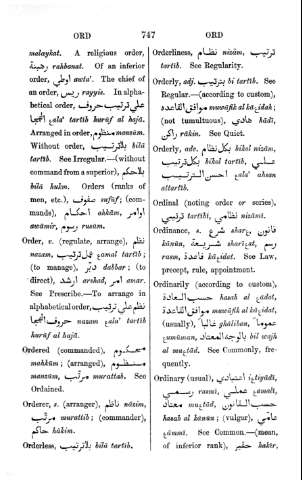 ORD 747 ORD
melaykat. A religious order,
رهبنة rahbanat. Of an inferior
order, اوطي awta'. The chief of
an order, ريس rayyis. In alpha-
betical order, علي ترتيب حروف
الهجا ȩala' tartīb hurūf al hajā.
Arranged in order, منظوم manzūm.
Without order, بلا ترتيب bilā
tartīb. See Irregular.—(without
command from a superior), بلا حكم
bilā hukm. Orders (ranks of
men, etc.), صفوف sufūf; (com-
mands), احكام ahkām, اوامر
awāmir, رسوم rusūm.
Order, v. (regulate, arrange), نظم
nazam, عمل ترتيب ȩamal tartīb;
(to manage), دبّر dabbar; (to
direct), ارشد arshad, امر amar.
See Prescribe.—To arrange in
alphabetical order, نظم علي ترتيب
حروف الهجا nazam ȩala' tartīb
hurūf al hajā.
Ordered (commanded), محكوم
mahkūm; (arranged), منظوم
manzūm, مرتّب murattab. See
Ordained.
Orderer, s. (arranger), ناظم nāzim,
مرتّب murattib; (commander),
حاكم hākim.
Orderless, بلا ترتيب bilā tartīb.
Orderliness, نظام nizām, ترتيب
tartīb. See Regularity.
Orderly, adj. بترتيب bi tartīb. See
Regular.—(according to custom),
موافق القاعدة muwāfik al kāȩidah;
(not tumultuous), هادي hādī,
راكن rākin. See Quiet.
Orderly, adv. بكل نظام bikol nizām,
بكل ترتيب bikol tartīb, علي
احسن الترتيب ȩala' ahsan
attartīb.
Ordinal (noting order or series),
ترتيبي tartībī, نظامي nizāmī.
Ordinance, s. شرع sharȩ, قانون
kānūn, شريعة sharīȩat, رسم
rasm, قاعدة kāȩidat. See Law,
precept, rule, appointment.
Ordinarily (according to custom),
حسب العادة hasab al ȩādat,
موافق القاعدة muwāfik al kāȩidat,
(usually), غالباً ghāliban, عموماً
ȩumūman, بالوجه المعتاد bil wajh
al muȩtād. See Commonly, fre-
quently.
Ordinary (usual), اعتيادي iȩtiyādī,
رسمي rasmī, عملي ȩamalī,
معتاد muȩtād, حسب القانون
hasab al kānūn; (vulgar), عامي
ȩāmmī. See Common.—(mean,
of inferior rank), حقير hakīr,